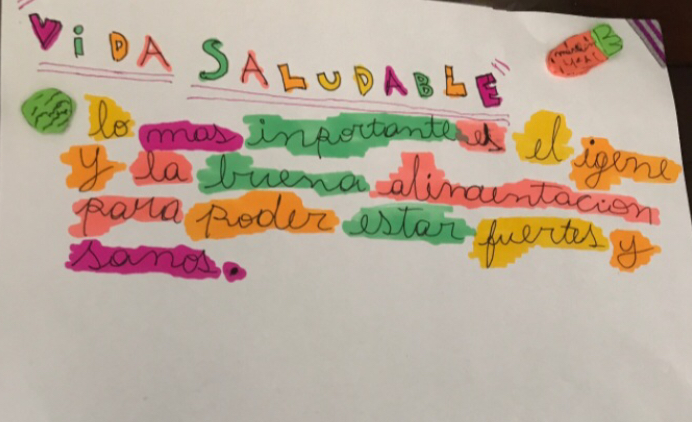 VIDA SALUDABLE"
lo mas inportante es el igene
y la buena alimentacion
para poder estar fuertes y
sanos.